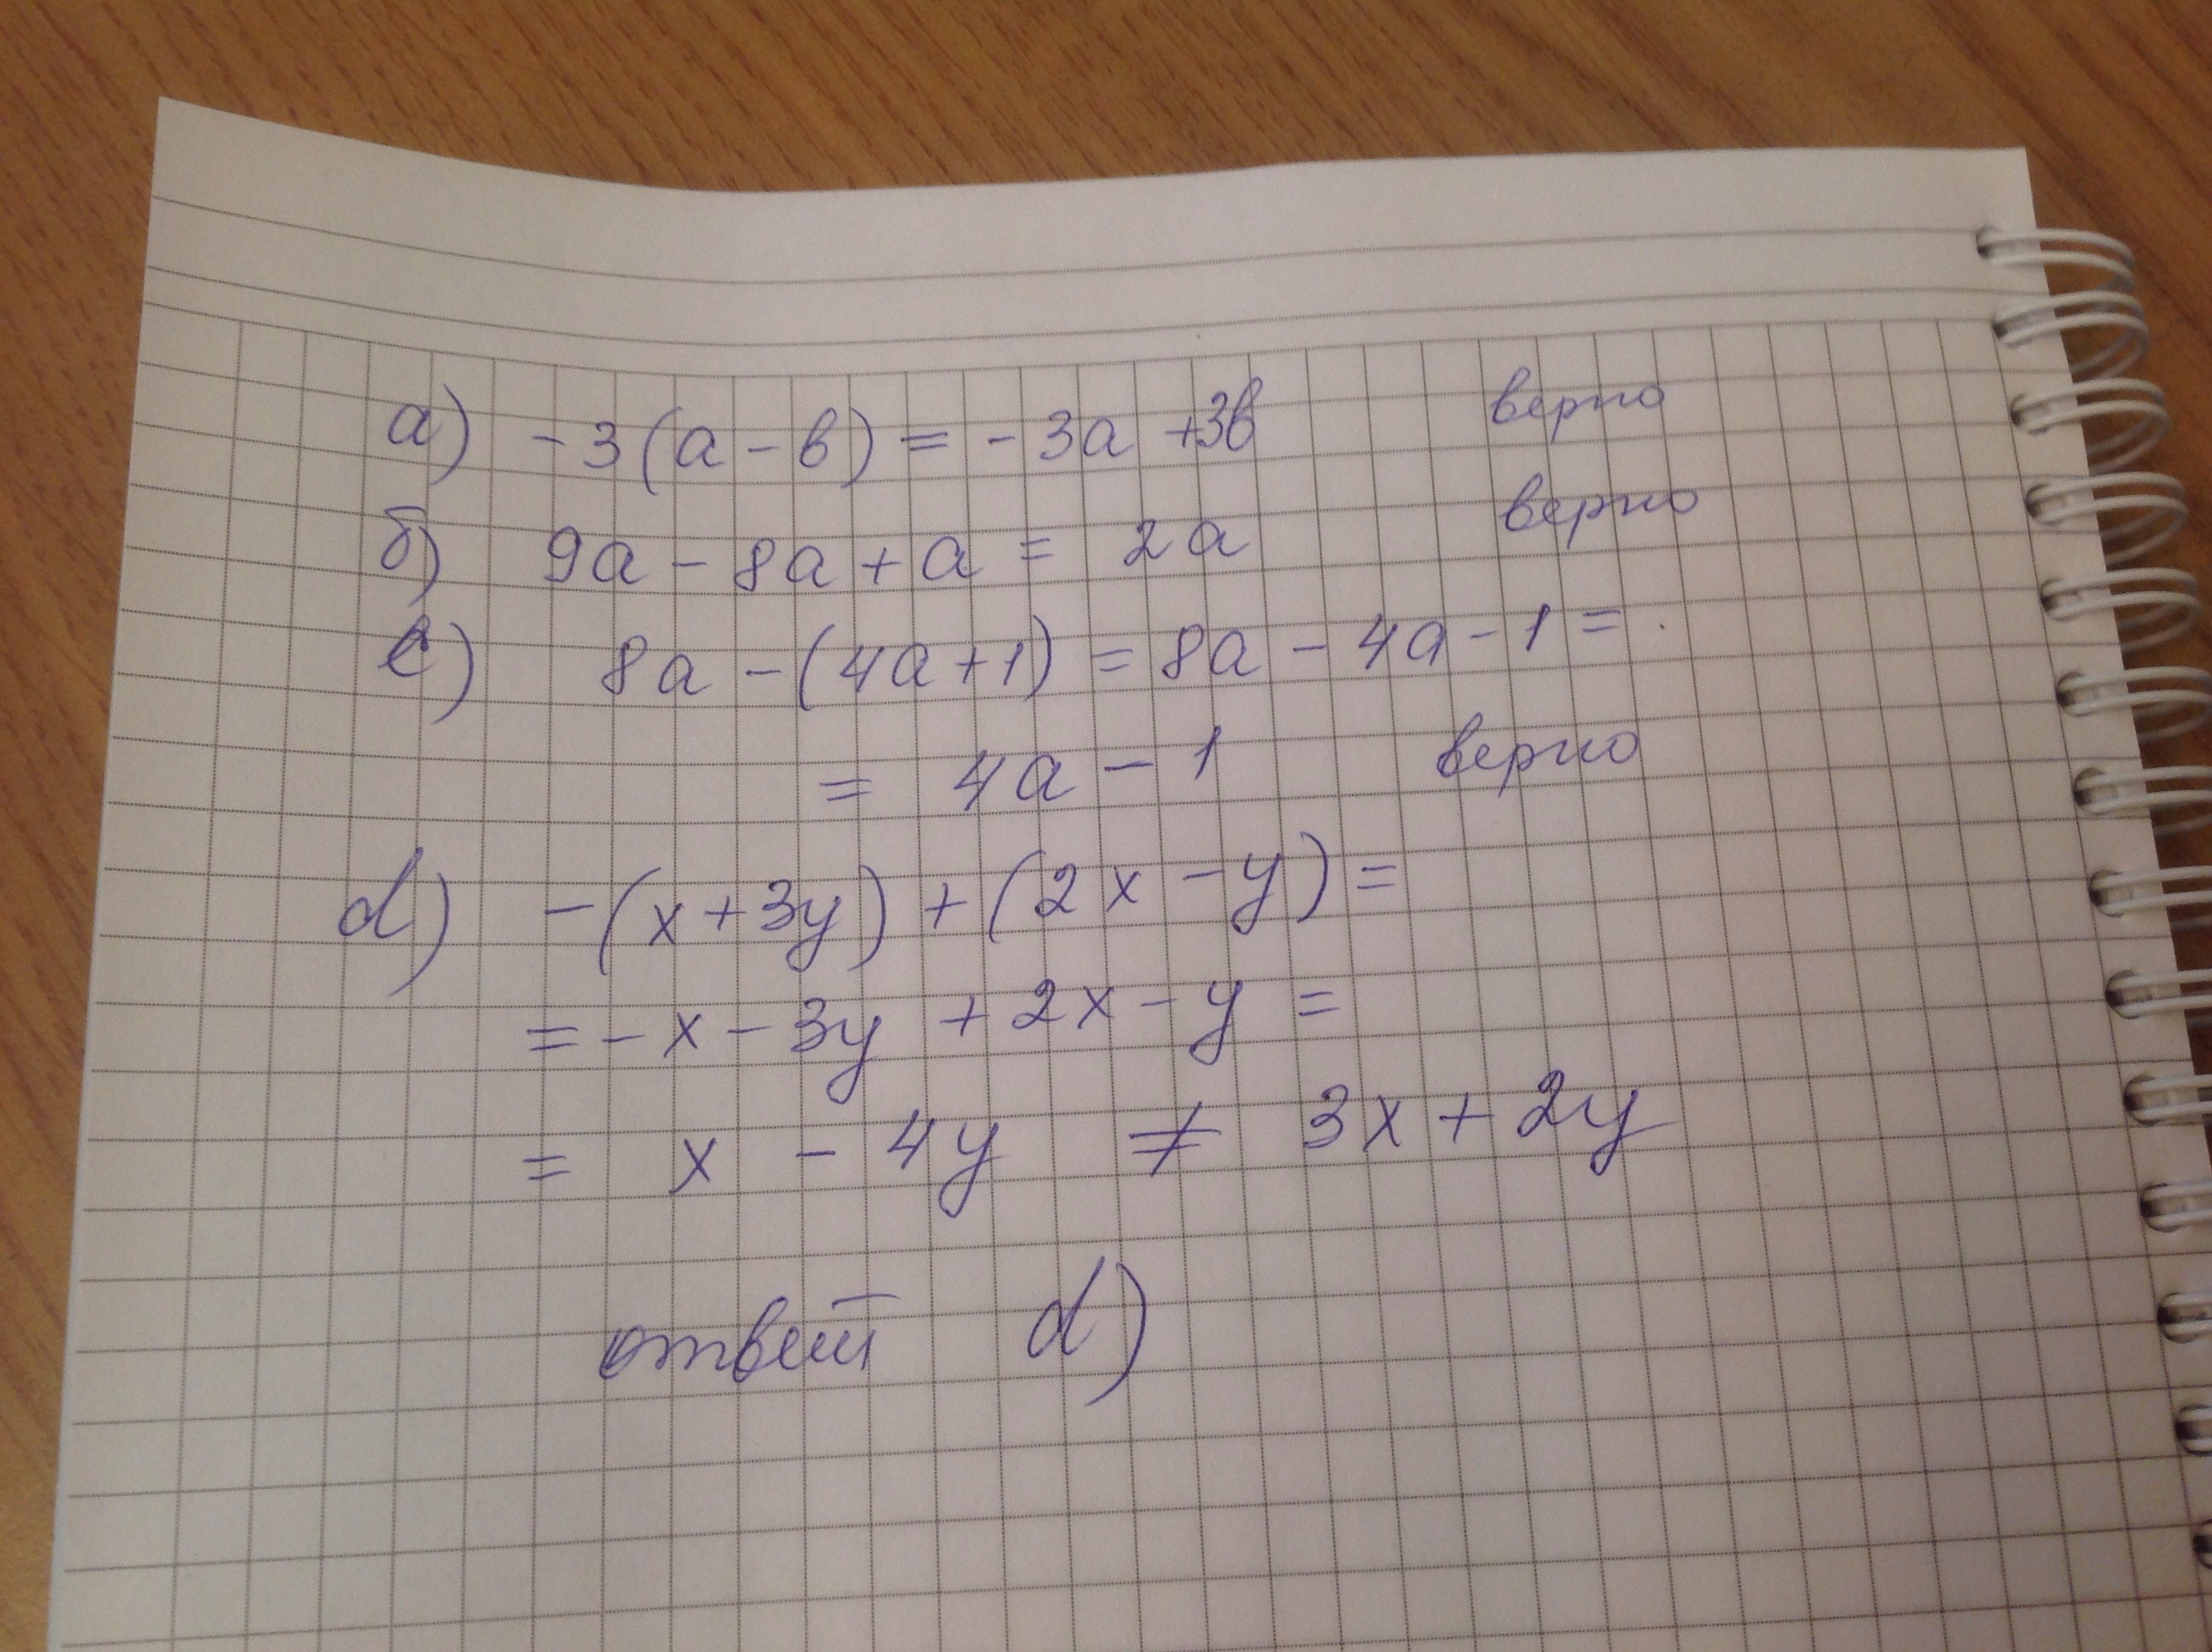 а) - 3(а - в) = - 3а + 3в верно
б) 9а - 8а + а = 2а верно
с) 8а - (4а + 1) = 8а - 4а - 1 =
= 4а - 1 верно
d) - (x + 3y) + (2x - y) =
= - x - 3y + 2x - y =
= x - 4y ≠ 3x + 2y
ответ d)